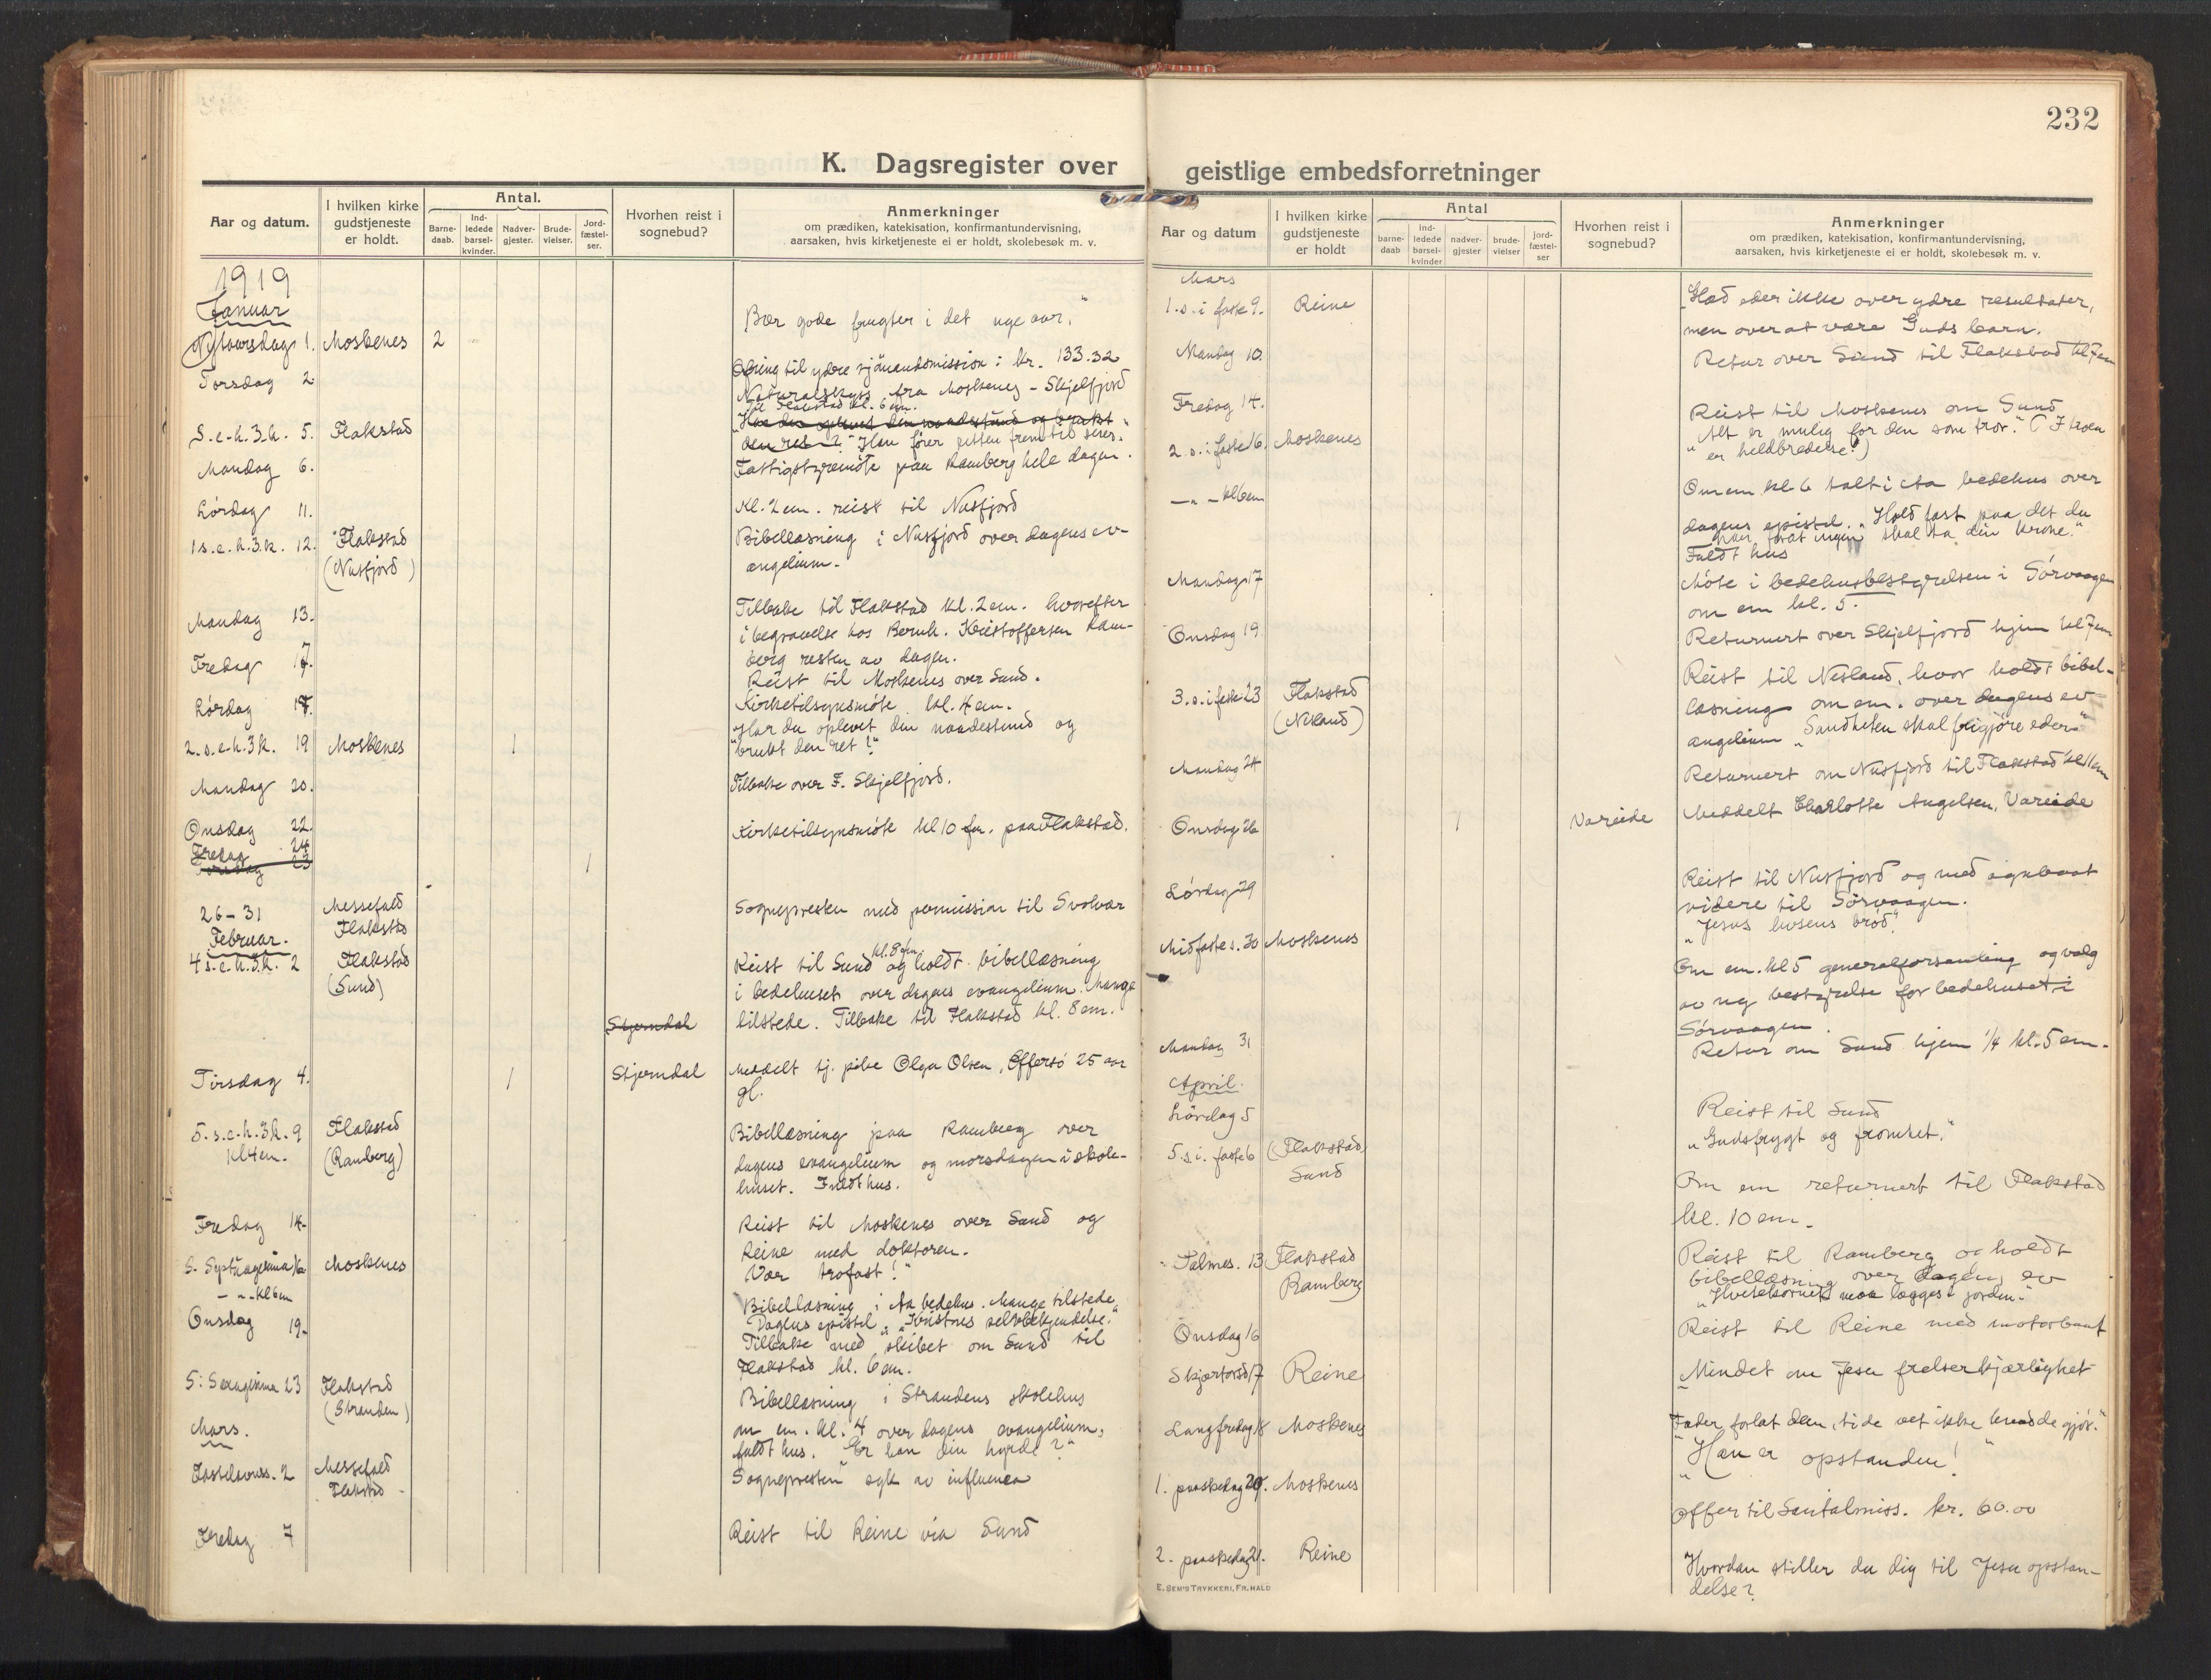 232
K. Dagsregister over geistlige embedsforretninger
Aar og datum.
I hvilken kirke gudstjeneste er holdt.
Antal.
Barne-daab.
Ind-ledede barsel-kvinder.
Nadver-gjester.
Brude-vielser.
Jord-fæstel-ser.
Hvorhen reist i sognebud?
Anmerkninger
om prædiken, katekisation, konfirmantundervisning,
aarsaken, hvis kirketjeneste ei er holdt, skolebesøk m. v.
1919
Januar
Bær gode frugter i det nye aar."
Nytaarsdag 1. Moskenes 2
Ofring til ydre sjömandsmission: kr. 133.32
Torsdag 2
Naturalskyss fra Moskenes - Skjelfjord
til Flakstad kl. 6 em.
Har du oplevet din naadestund og brukt
S.e.h.3.k. 5. Flakstad
den ret? "Han fører retten frem til seier."
Mandag 6.
Fattigstyremöte paa Ramberg hele dagen.
Lørdag 11.
Kl. 2 em. reist til Nusfjord
1 s.e.h.3.k. 12. Flakstad
(Nusfjord)
Bibellæsning i Nusfjord over dagens ev-
angelium.
Mandag 13.
Tilbake til Flakstad kl. 2 em. hvorefter
i begravelse hos Bernh. Kristoffersen Ram-
berg resten av dagen.
Fredag 17.
Reist til Moskenes over Sund.
Lørdag
Kirketilsynsmöte kl. 4 em.
"Har du oplevet din naadestund og
2. s.e.h.3k. 19 Moskenes 1
brukt den ret!"
Mandag 20.
Tilbake over F. Skjelfjord.
Onsdag 22.
Kirketilsynsmöte kl 10 fm. paa Flakstad.
Fredag 24
Torsdag 23
1
26-31
Messefald
Flakstad
Sognepresten med permission til Svolvær
Februar.
4 s.e.h.3k. 2 Flakstad
(Sund)
Reist til Sund kl. 8 fm og holdt bibellæsning
i bedehuset over dagens evangelium. Mange
tilstede. Tilbake til Flakstad kl. 8 em.
Stjerndal
Tirsdag 4. 1 Stjerndal
Meddelt tj. pike Olga Olsen, Effersö 25 aar
gl.
5. s.e.h.3k. 9 Flakstad
Kl 4 em. (Ramberg)
Bibellæsning paa Ramberg over
dagens evangelium og morsdagen i skole-
huset. Fuldt hus.
Fredag 14.
Reist til Moskenes over Sund og
Reine med doktoren.
S. Septuagesima 16 Moskenes
"Vær trofast!"
— " - Kl 6 em
Bibellæsning i Aa bedehus. Mange tilstede
Dagens epistel. "Kristnes selvbekjendelse."
Onsdag 19.
Tilbake med skibet om Sund til
Flakstad kl. 6 em.
S: Sexagesima 23 Flakstad
(Stranden)
Bibellæsning i Strandens skolehus
om em. kl. 4 over dagens evangelium,
fuldt hus. "Er han din hyrde?"
Mars.
Fastelavnss. 2 Messefald
Flakstad
Sognepresten syk av influensa
Fredag 7
Reist til Reine via Sund
Aar og datum
I hvilken kirke gudstjeneste er holdt
Antal
barne-daab
ind-ledede barsel-kvinder
nadver-gjester
brude-vielser
jord-fæstel-ser
Hvorhen reist i sognebud?
Anmerkninger
om prædiken, katekisation, konfirmantundervisning,
aarsaken, hvis kirketjeneste ei er holdt, skolebesøk m. v.
Mars
1. s. i faste 9. Reine
"Glæd eder ikke over ydre resultater,
men over at være Guds barn.
Mandag 10.
Retur over Sund til Flakstad kl 7 em
Fredag 14.
Reist til Moskenes om Sund
2 s. i faste 16. Moskenes
"Alt er mulig for den som tror." (I troen
er helbredelse!)
— " - kl 6 em
Om em kl 6 talt i Aa bedehus over
dagens epistel. "Hold fast paa det du
har, forat ingen skal ta din krone."
Fuldt hus
Mandag 17
Möte i bedehusbestyrelsen i Sörvaagen
om em kl. 5.
Onsdag 19
Returnert over Skjelfjord hjem kl 7 em
3. s. i faste 23 Flakstad
(Nesland)
Reist til Nesland, hvor holdt bibel-
læsning om em. over dagens ev
angelium "Sandheten skal frigjöre eder."
Mandag 24
Returnert om Nusfjord til Flakstad kl 11 em
Onsdag 26 1 Vareide
Meddelt Charlotte Angelsen, Vareide
Lördag 29
Reist til Nusfjord og med agnbaat
videre til Sörvaagen.
Midfastes. 30 Moskenes
"Jesus livsens bröd."
Om em. kl 5 generalforsamling og valg
av ny bestyrelse for bedehuset i
Sörvaagen.
Mandag 31
Retur om Sund hjem 1/4 kl. 5 em.
April.
Lördag 5
Reist til Sund
5. s. i. faste 6 (Flakstad)
Sund
"Gudsfrygt og fromhet."
Om em returnert til Flakstad
kl. 10 em.
Palmes. 13 Flakstad
Ramberg
Reist til Ramberg og holdt
bibellæsning over dagens ev
"Hvetekornet maa lægges i jorden."
Onsdag 16
Reist til Reine med motorbaat
Skjærtorsd 17 Reine
"Mindet om Jesu frelserkjærlighet
Langfredag 18 Moskenes
"Fader forlat dem, ti de vet ikke hvad de gjör."
1. paaskedag 20. Moskenes
"Han er opstanden!"
Offer til Santalmiss. kr. 60.00
2. paaskedag 21. Reine
Hvordan stiller du dig til Jesu opstan-
delse?
E. SEM'S TRYKKERI, FR.HALD